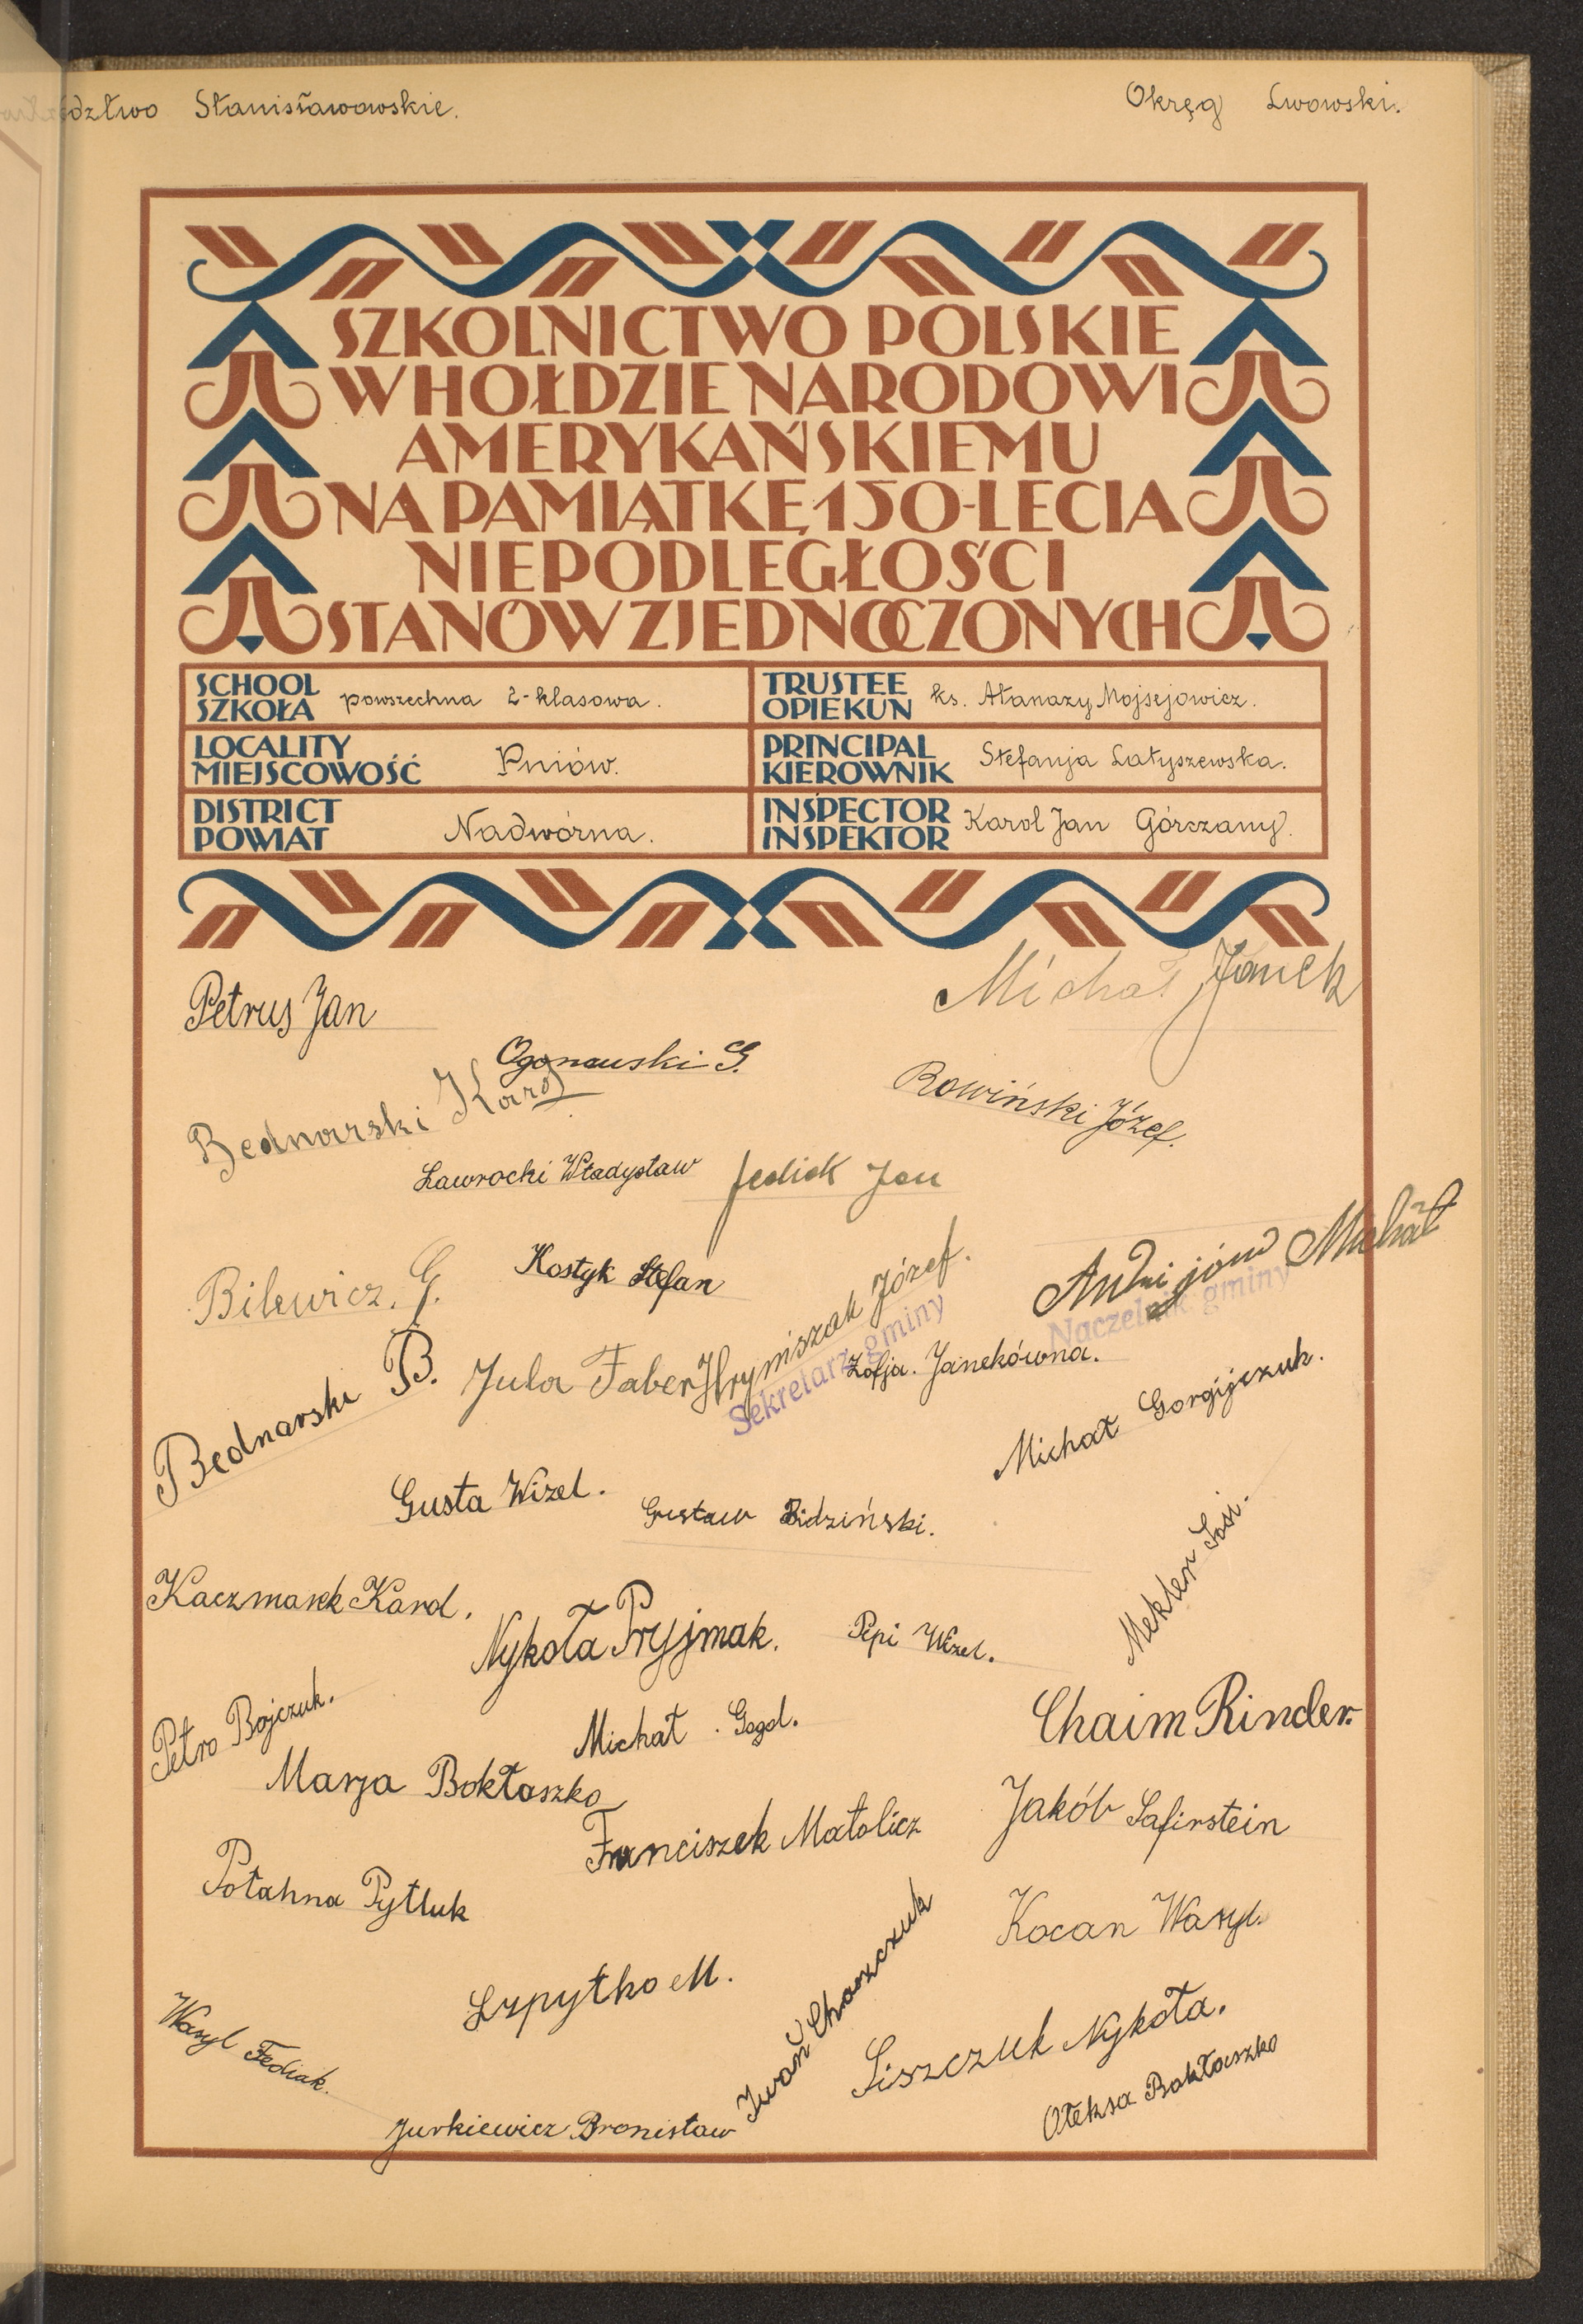 Województwo Stanisławowskie.
Okręg Lwowski.
SZKOLNICTWO POLSKIE
W HOŁDZIE NARODOWI
AMERYKAŃSKIEMU
NA PAMIĄTKĘ 150-LECIA
NIEPODLEGŁOŚCI
STANÓW ZJEDNOCZONYCH
SCHOOL
SZKOŁA powszechna 2-klasowa.
TRUSTEE
OPIEKUN ks. Atanazy Mojsejowicz.
LOCALITY
MIEJSCOWOŚĆ Pniów.
PRINCIPAL
KIEROWNIK Stefanja Łatyszewska.
DISTRICT
POWIAT Nadwórna.
INSPECTOR
INSPEKTOR Karol Jan Górczany.
Petrus Jan
Michał Janek
Ogonowski G.
Bednarski Karol
Rowiński Józef.
Ławrocki Władysław
Jedick Jan
Bilewicz. G.
Kostyk Stefan
Hryniszak Józef.
Sekretarz gminy
Andrijów Michał
Naczelnik gminy
Bednarski B.
Jula Faber
Zofja. Janekówna.
Michał Gorgijczuk.
Gusta Wizel.
Gustaw Bidziński.
Mekler Losi.
Kaczmarek Karol.
Nykoła Pryjmak.
Pepi Wizel.
Petro Bojczuk.
Michał Gogol.
Chaim Rinder.
Marja Bokłaszko
Franciszek Matolicz
Jakób Safirstein
Połahna Pytluk
Kocan Wasyl.
Szpytko M.
Iwan Charzczuk
Wasyl Fediak.
Liszczuk Nykoła.
Ołeksa Bokłaszko
Jurkiewicz Bronisław